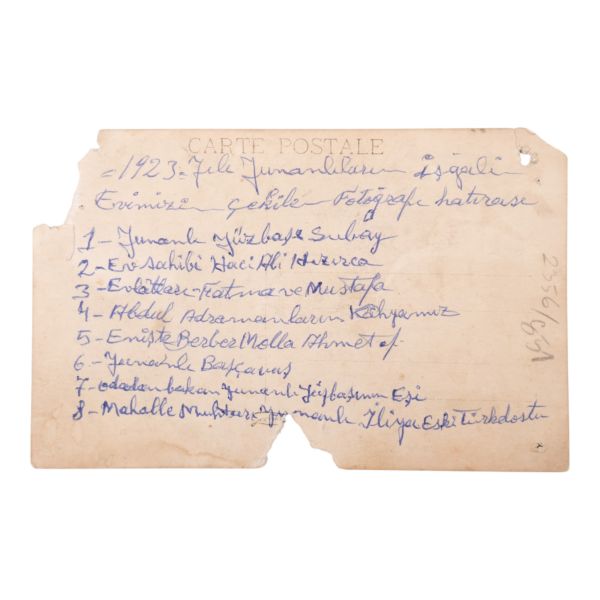 CARTE POSTALE
= 1923 - Yılı Yunanlıların işgali
Evimizin çekilen Fotoğrafı hatırası
1 - Yunanlı Yüzbaşı Subay
2 - Ev sahibi Haci Ali Hızırca
3 - Evlâtları - Fatma ve Mustafa
4 - Abdul Adramanların Kâhyamız
5 - Enişte Berber Molla Ahmet ef.
6 - Yunanlı Başçavuş
7 - odadan bakan Yunanlı Yüzbaşının Eşi
8 - Mahalle Muhtarı Yunanlı İliya Eski Türkdostu